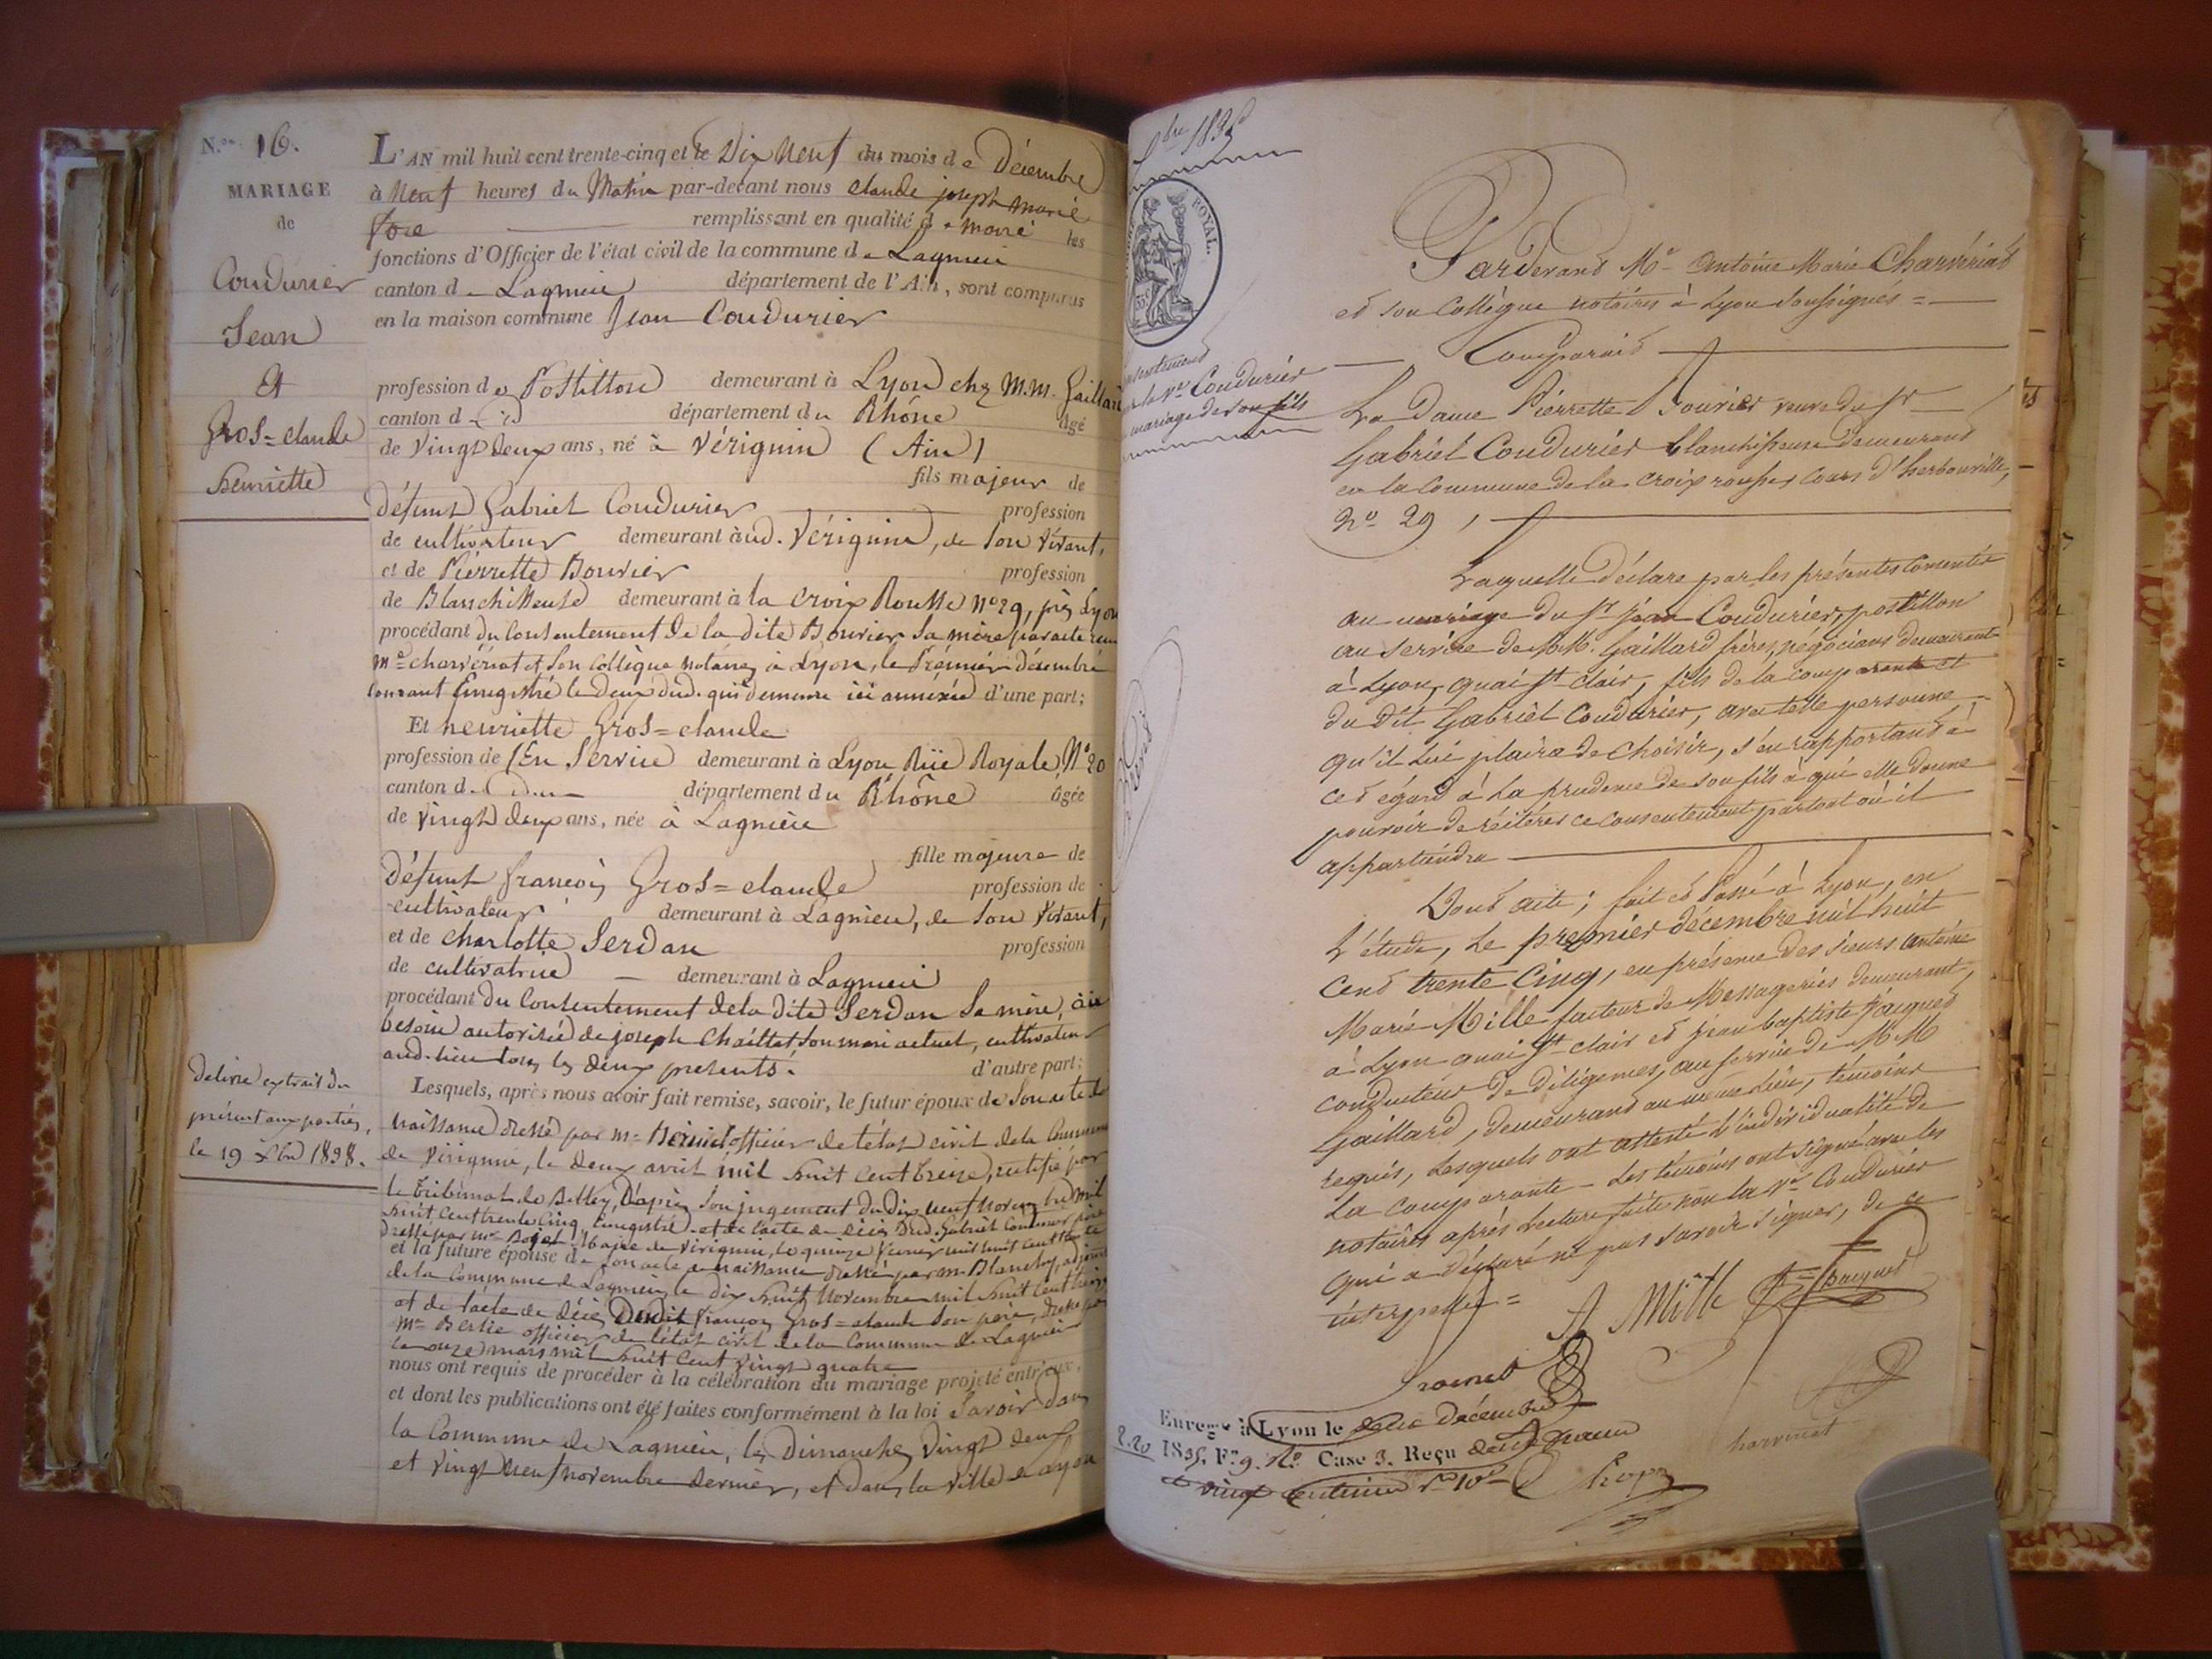 N.os 16.
MARIAGE
de
Coudurier
Jean
Et
Gros=claude
henriette
L'AN mil huit cent trente-cinq et le Dix Neuf du mois de Décembre
à Neuf heures du Matin par-devant nous claude joseph marie
remplissant en qualité de maire les
fonctions d'Officier de l'état civil de la commune de Lagnieu
canton de Lagnieu département de l'Ain, sont comparus
en la maison commune Jean Coudurier
profession de Postillon demeurant à Lyon chez M.M. Gaillard
canton d département du Rhône âgé
de Vingt deux ans, né à Vérignin (Ain)
fils majeur de
défunt Gabriel Coudurier profession
de cultivateur demeurant aud. Vérignin, de son vivant,
et de Pierrette Bouvier profession
de Blanchisseuse demeurant à la Croix Rousse N° 29, près Lyon
procédant du Consentement de la dite Bouvier sa mère par acte reçu
Me charvériat et son collègue notaires à Lyon, le Premier décembre
courant Enregistré le deux dud. qui demeure ici annexée d'une part;
Et henriette Gros=claude
profession de (En Service demeurant à Lyon Rüe Royale, N° 20
canton d département du Rhône âgée
de vingt deux ans, née à Lagnieu
fille majeure de
défunt françois Gros=claude profession de
cultivateur demeurant à Lagnieu, de son vivant,
et de charlotte Serdan profession
de cultivatrice demeurant à Lagnieu
procédant du Consentement de la dite Serdan sa mère, à ce
besoin autorisée de joseph Chaillet son mari actuel, cultivateur
aud. lieu tous les deux présents. d'autre part;
Lesquels, après nous avoir fait remise, savoir, le futur époux de son acte de
naissance dressé par Mr officier de l'état civil de la Commune
de Virignin, le deux avril mil huit cent treize, rectifié par
le tribunal de Belley, d'après son jugement du Dix neuf Novembre mil
huit cent trente cinq, Enregistré et de l'acte de décès Dud. Gabriel Coudurier père
dressé par Mr Maire de Virignin, le quinze mil huit cent
et la future épouse de son acte de naissance dressé par Mr Blanchy, adjoint
de la Commune de Lagnieu, le dix huit Novembre mil huit cent treize
et de l'acte de décès Dudit françois Gros=claude son père, dressé par
Mr officier de l'état civil de la Commune de Lagnieu
le onze mars mil huit cent vingt quatre
nous ont requis de procéder à la célébration du mariage projeté entr'eux,
et dont les publications ont été faites conformément à la loi Savoir dans
la Commune de Lagnieu, les Dimanches Vingt deux
et vingt neuf novembre dernier, et dans la ville de Lyon
Delivré extrait du
présent aux parties,
le 19 Xbre 1838.
Xbre 1835
ROYAL.
Consentement
par la ve Coudurier
mariage de son fils
Pardevant Me Antoine Marie Charvériat
et son Collègue notaires à Lyon soussignés =
Comparait
La Dame Pierrette Bouvier veuve du Sr
Gabriel Coudurier blanchisseuse demeurant
en la Commune de la croix rousse, Cours d'herbouville,
n° 29,
Laquelle déclare par les présentes Consentir
au mariage du Sr jean Coudurier, postillon
au service de M.M. Gaillard frères, négocians demeurant
à Lyon, quai St clair, fils de la comparante et
du dit Gabriel Coudurier, avec telle personne
qu'il lui plaira de choisir, s'en rapportant à
cet égard à la prudence de son fils à qui elle donne
pouvoir de réitérer ce consentement partout où il
appartiendra
Dont acte; fait et Passé à Lyon, en
L'étude, Le premier décembre mil huit
Cent trente Cinq, en présence des sieurs Antoine
Marie Mille facteur de Messageries demeurant,
à Lyon quai St clair et jean baptiste Jacques
conducteur de Diligences, au service de M.M
Gaillard, demeurant au même lieu, témoins
requis, Lesquels ont attesté l'individualité de
La comparante - Les témoins ont signé avec les
notaires après Lecture faite non la ve Coudurier
qui a déclaré ne pas savoir signer, de ce
interpellée =
A Mille
Jacques
charveriat
Enreg. à Lyon le deux décembre
1835, F° 9. R° Case 3. Reçu deux francs
2.20
et vingt centimes